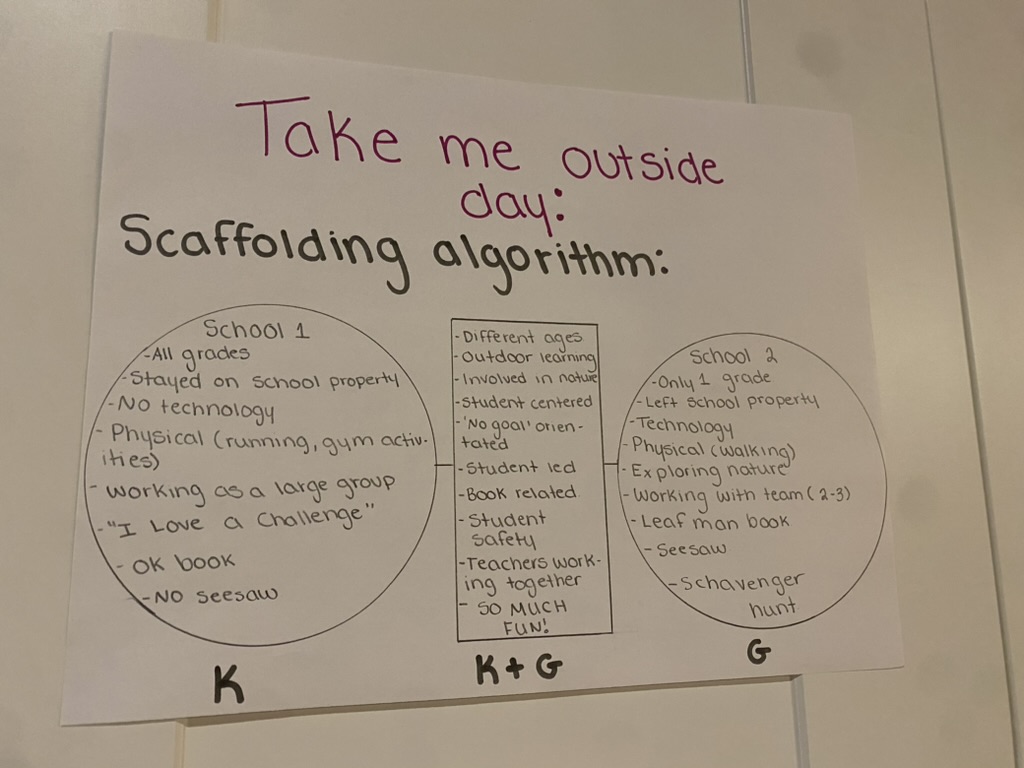 Take me outside
day:
Scaffolding algorithm:
School 1
-All grades
-Stayed on school property
-No technology
- Physical (running, gym activ-
ities)
- working as a large group
-"I Love a Challenge"
- OK book
-No seesaw
K
-Different ages
-Outdoor learning
-Involved in nature
-Student centered
-'No goal' orien-
tated
-Student led
-Book related
-Student
safety
-Teachers work-
ing together
- SO MUCH
FUN!
K+G
School 2
-Only 1 grade
-Left school property
-Technology
-Physical (walking)
-Exploring nature
-Working with team (2-3)
-Leaf man book
-Seesaw
-Schavenger
hunt
G